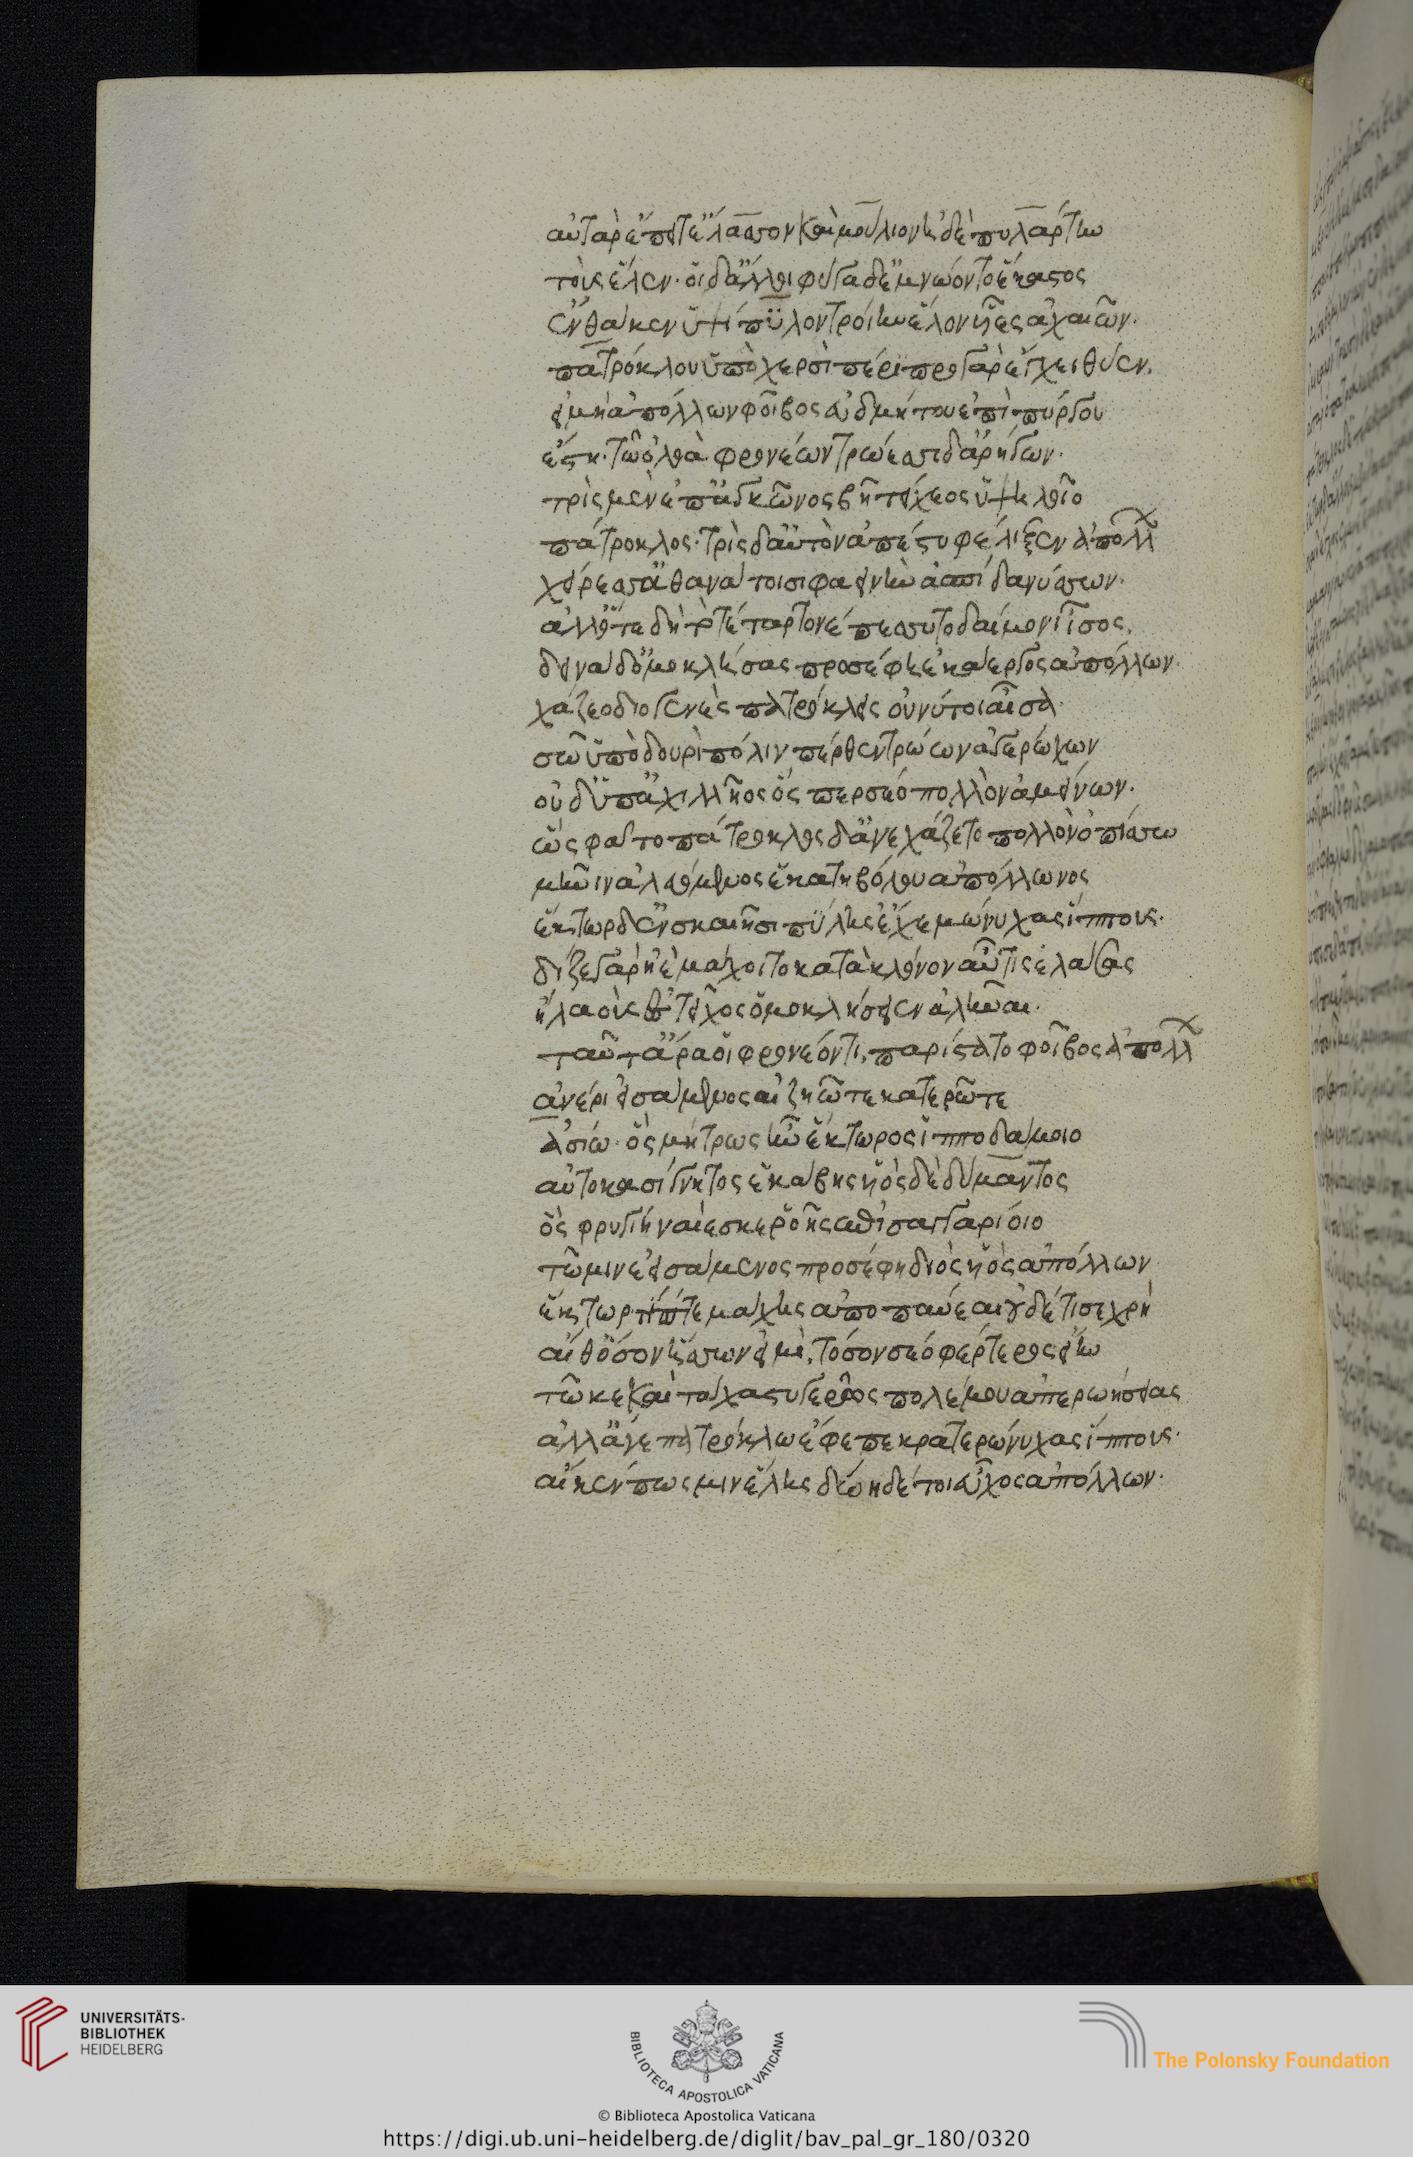 αὐτὰρ ἔπειτ' ἔλασον καὶ μούλιον ἠδὲ πυλάρτην
τοὺς ἕλεν· οἱ δ' ἄλλοι φύγαδε μνώοντο ἕκαστος
ἔνθά κεν ὑψίπυλον τροίην ἕλον υἷες ἀχαιῶν·
πατρόκλου ὑπὸ χερσὶ πέρι πρὸ γὰρ ἔγχεϊ θύεν.
εἰ μὴ ἀπόλλων φοῖβος ἐϋδμήτου ἐπὶ πύργου
ἔστη· τῶ ὀλοὰ φρονέων τρώεσσι δ' ἀρήγων·
τρὶς μὲν ἐπ' ἀγκῶνος βῆ τείχεος ὑψηλοῖο
πάτροκλος· τρὶς δ' αὐτὸν ἀπεστυφέλιξεν ἀπόλλ
χείρεσσ' ἀθανάτοισι φαεινὴν ἀσπίδα νύσσων·
ἀλλ' ὅτε δὴ τὸ τέταρτον ἐπέσσυτο δαίμονι ἶσος.
δεινὰ δ' ὁμοκλήσας προσέφη ἑκάεργος ἀπόλλων·
χάζεο διογενὲς πατρόκλεις οὔ νύ τοι αἶσα
σῶ ὑπὸ δουρὶ πόλιν πέρθεν τρώων ἀγερώχων
οὐδ' ὑπ' ἀχιλλῆος ὅς περ σέο πολλὸν ἀμείνων·
ὣς φάτο πάτροκλος δ' ἀνεχάζετο πολλὸν ὀπίσσω
μῆνιν ἀλευόμενος ἑκατηβόλου ἀπόλλωνος
ἕκτωρ δ' ἐν σκαιῆσι πύλης ἔχε μώνυχας ἵππους·
δίζε γὰρ ἠὲ μάχοιτο κατὰ κλόνον αὖτις ἐλάσσας
ἢ λαοὺς ἐς τεῖχος ὁμοκλήσειεν ἀλῆναι·
ταῦτ' ἄρα οἱ φρονέοντι, παρίστατο φοῖβος ἀπόλλ
ἀνέρι εἰσάμενος αἰζηῶ τε κατερῶ τε
ἀσίω· ὃς μήτρως ἦν ἕκτορος ἱπποδάμοιο
αὐτοκασίγνητος ἑκάβης υἱὸς δὲ δύμαντος
ὃς φρυγίη ναίεσκε ῥοῆς ἐπὶ σαγγαρίοιο
τῶ μιν ἐεισάμενος προσέφη διὸς υἱὸς ἀπόλλων
ἕκτωρ τίπτε μάχης ἀποπαύεαι οὐδέ τί σε χρή
αἴθ' ὅσον ἥσσων εἰμὶ, τόσον σέο φέρτερος εἴην
τῶ κε καὶ τάχα στυγερῶς πολέμου ἀπερωήσειας
ἀλλ' ἄγε πατρόκλω ἔφεπε κρατερώνυχας ἵππους·
αἴ κέν πώς μιν ἕλης δώη δέ τοι εὖχος ἀπόλλων·
UNIVERSITÄTS-
BIBLIOTHEK
HEIDELBERG
BIBLIOTECA APOSTOLICA VATICANA
© Biblioteca Apostolica Vaticana
The Polonsky Foundation
https://digi.ub.uni-heidelberg.de/diglit/bav_pal_gr_180/0320